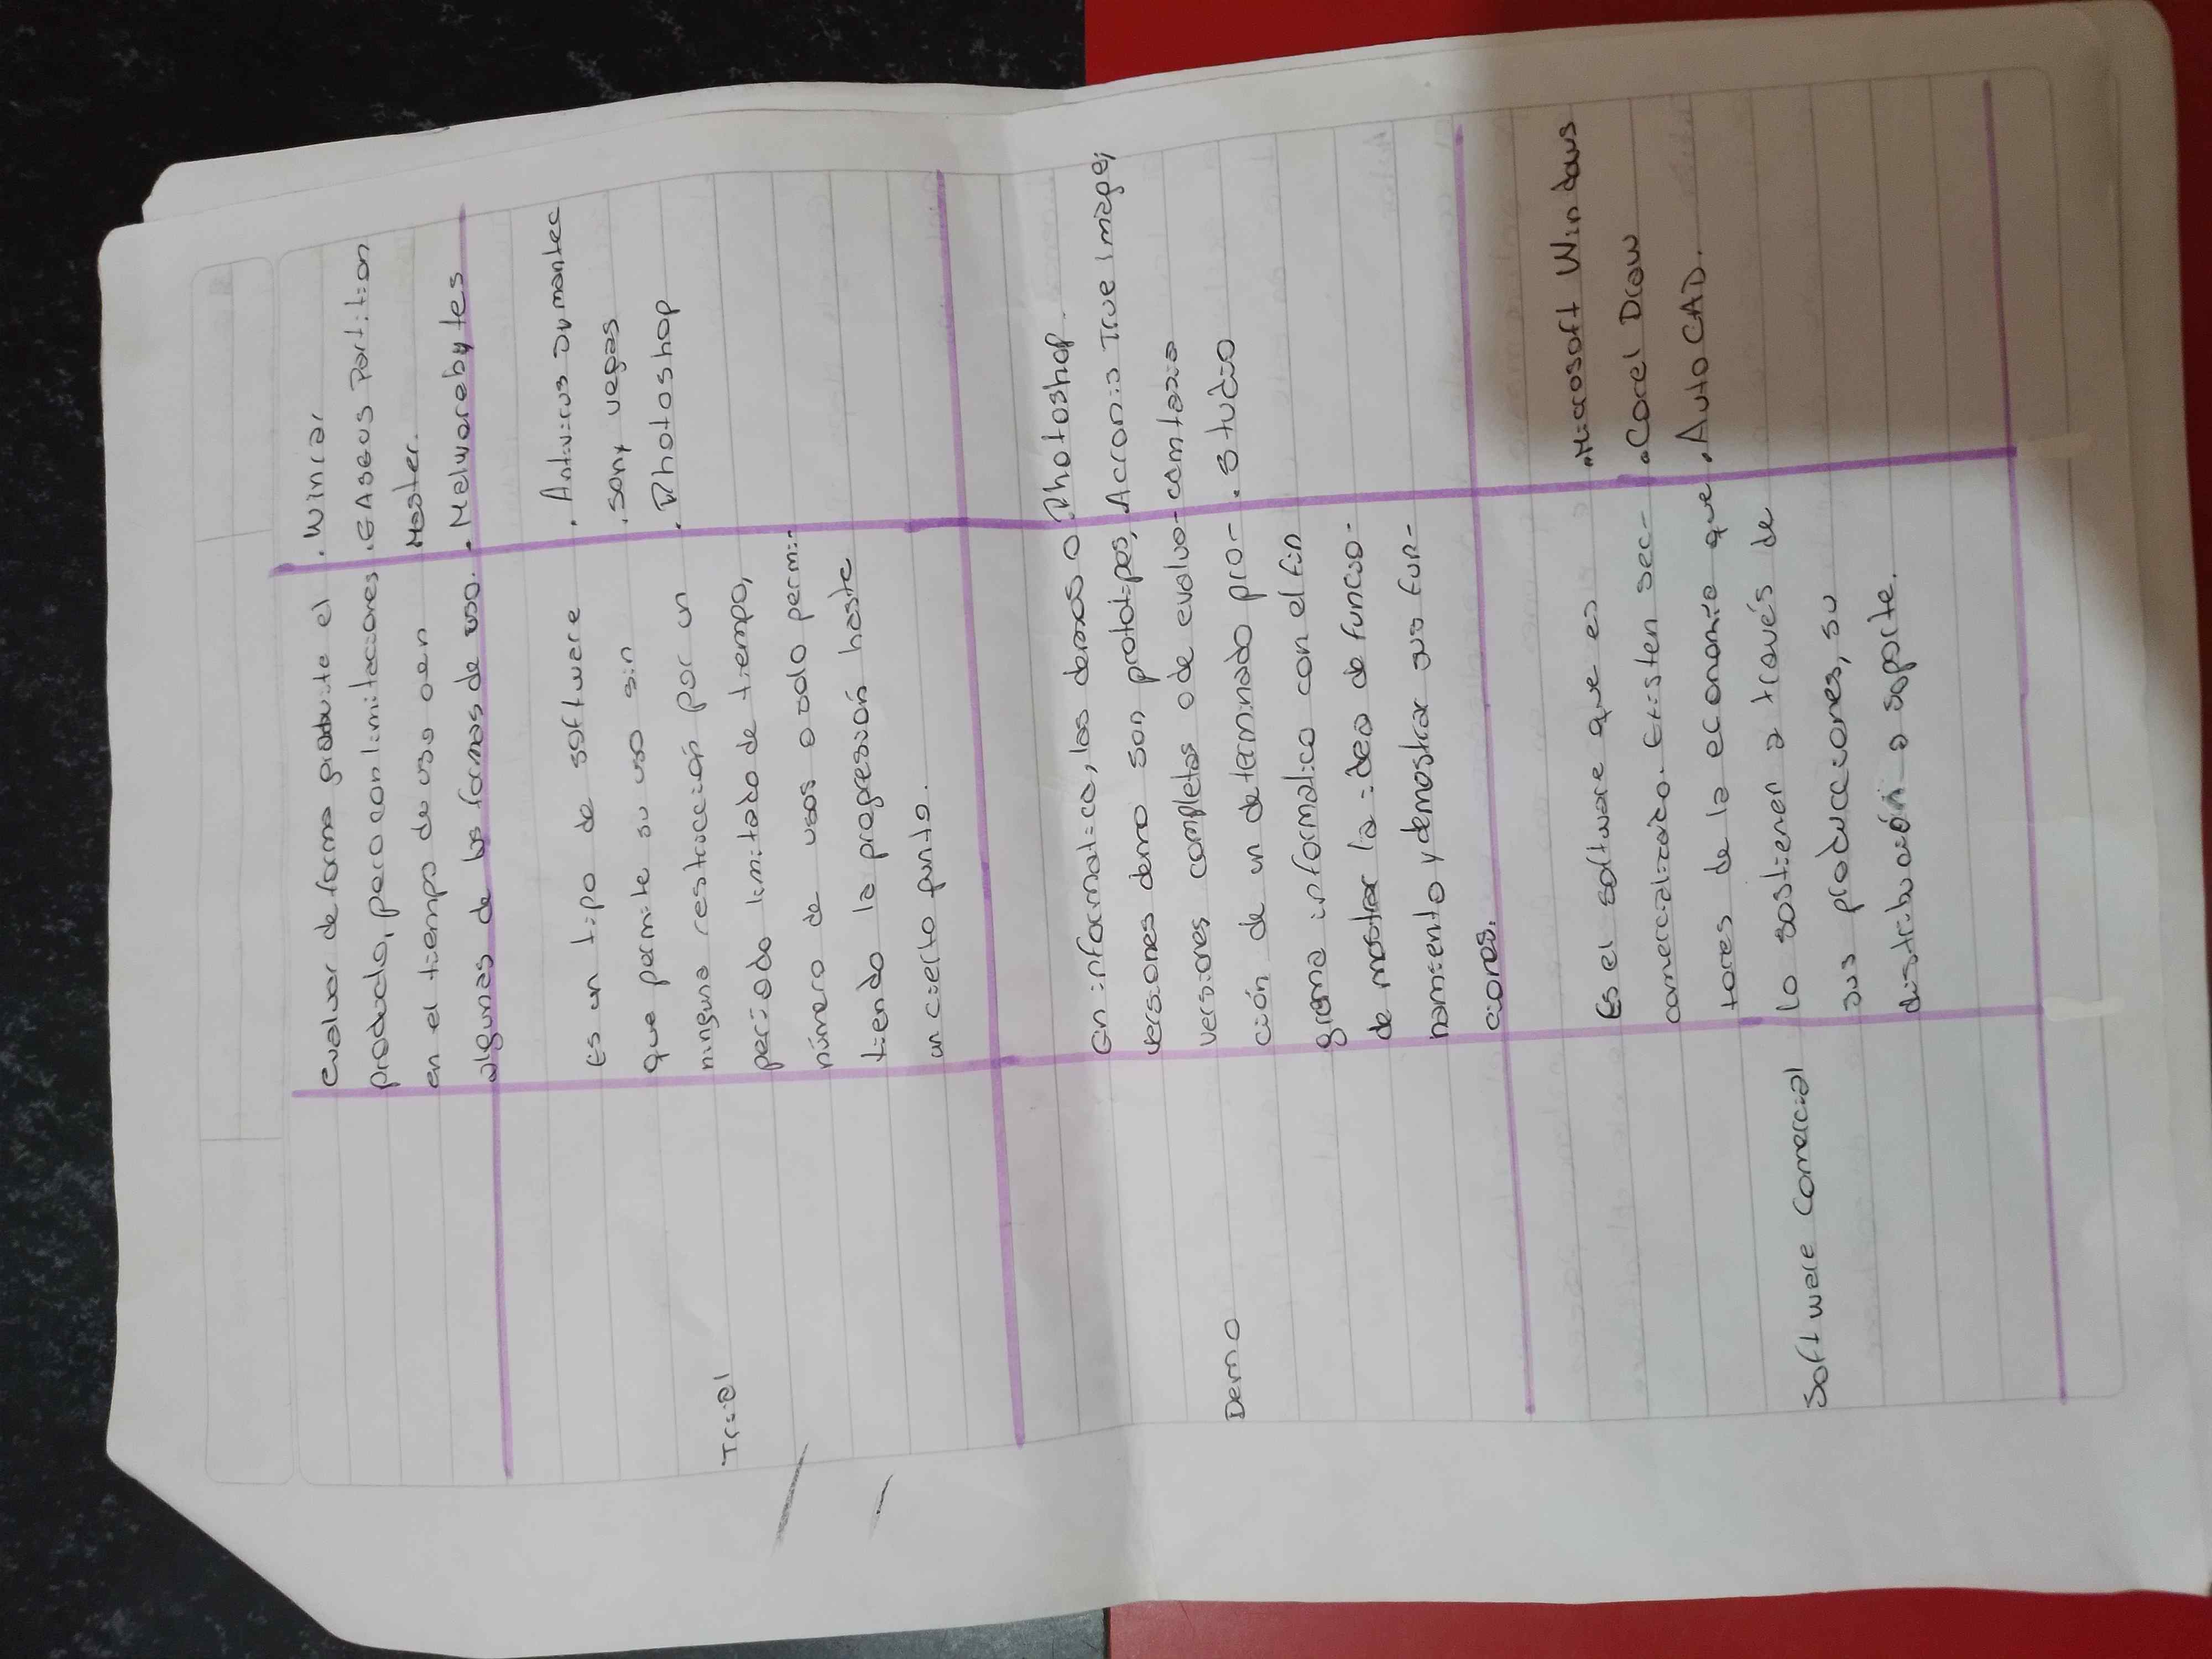 evaluar de forma gratuita el
producto, pero con limitaciones
en el tiempo de uso o en
algunas de las formas de uso.
. Winrar
. EASEUS Partition
Master.
. Malwarebytes
Trial
Es un tipo de software
que permite su uso sin
ninguna restricción por un
periodo limitado de tiempo,
número de usos o solo permi-
tiendo la progresión hasta
un cierto punto.
. Antivirus Symantec
. Sony vegas
. Photoshop
Demo
En informatica, las demos o
versiones demo son prototipos,
versiones completas o de evalua-
ción de un determinado pro-
grama informatico con el fin
de mostrar la idea de funcio-
namiento y demostrar sus fun-
ciones.
. Photoshop.
. Accronis True Image;
camtasia
. Studio
Software Comercial
Es el software que es
comercializado. Existen sec-
tores de la economía que
lo sostienen a través de
sus producciones, su
distribución o soporte.
. Microsoft Windows
. Corel Draw
. AutoCAD.